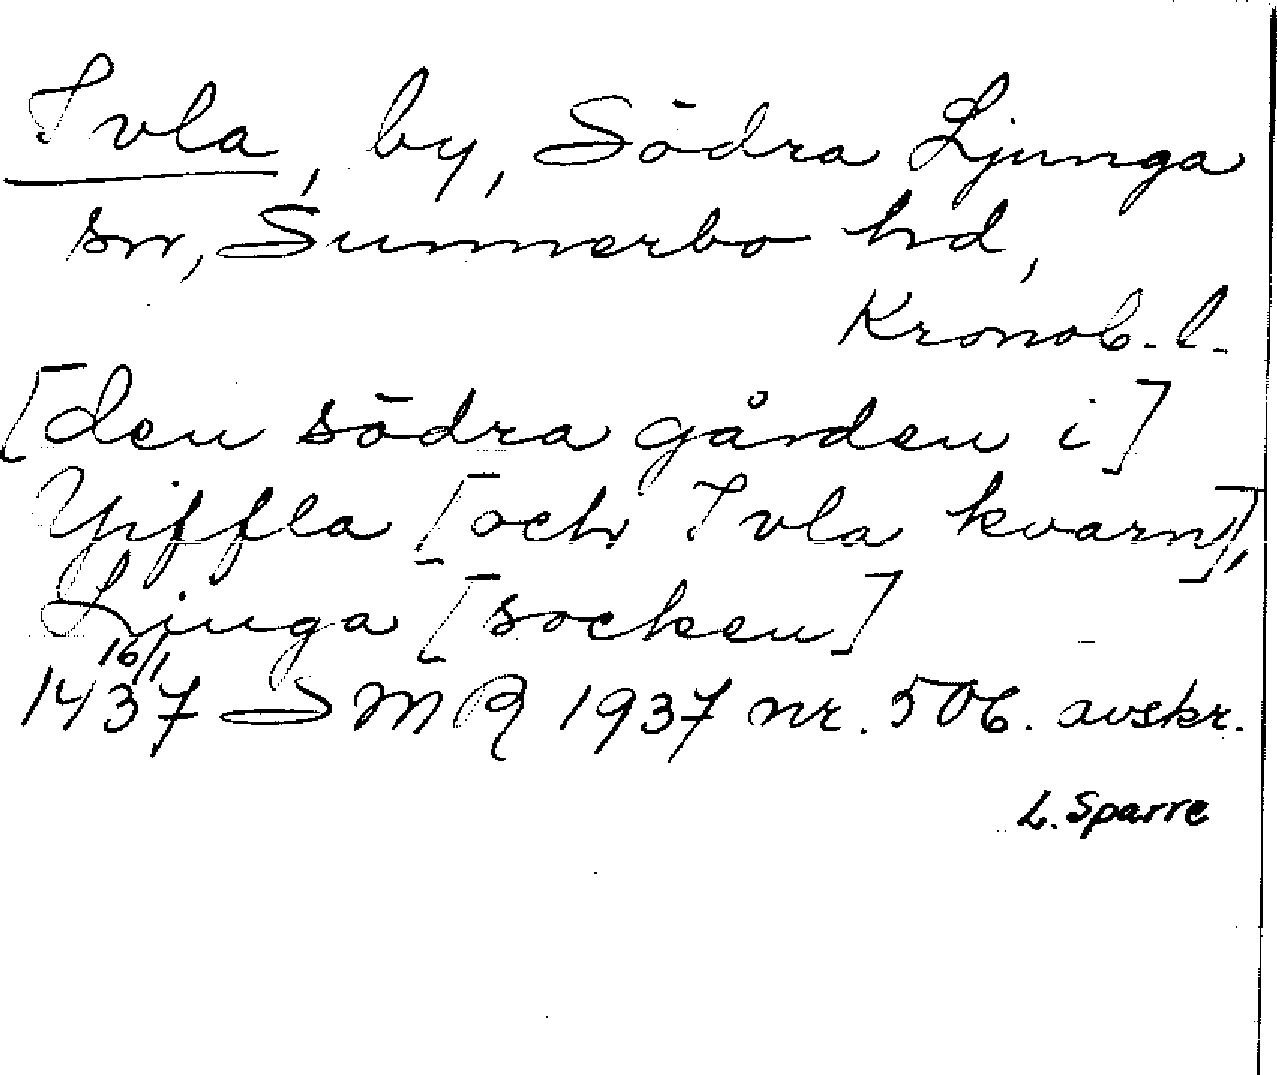 Ivla, by, Södra Ljunga
sn, Sunnerbo hd,
Kronob. l.
[den södra gården i]
Yiffla [och Ivla kvarn],
Liuga [socken]
16/1
1437 SMR 1937 nr. 506. avskr.
L. Sparre